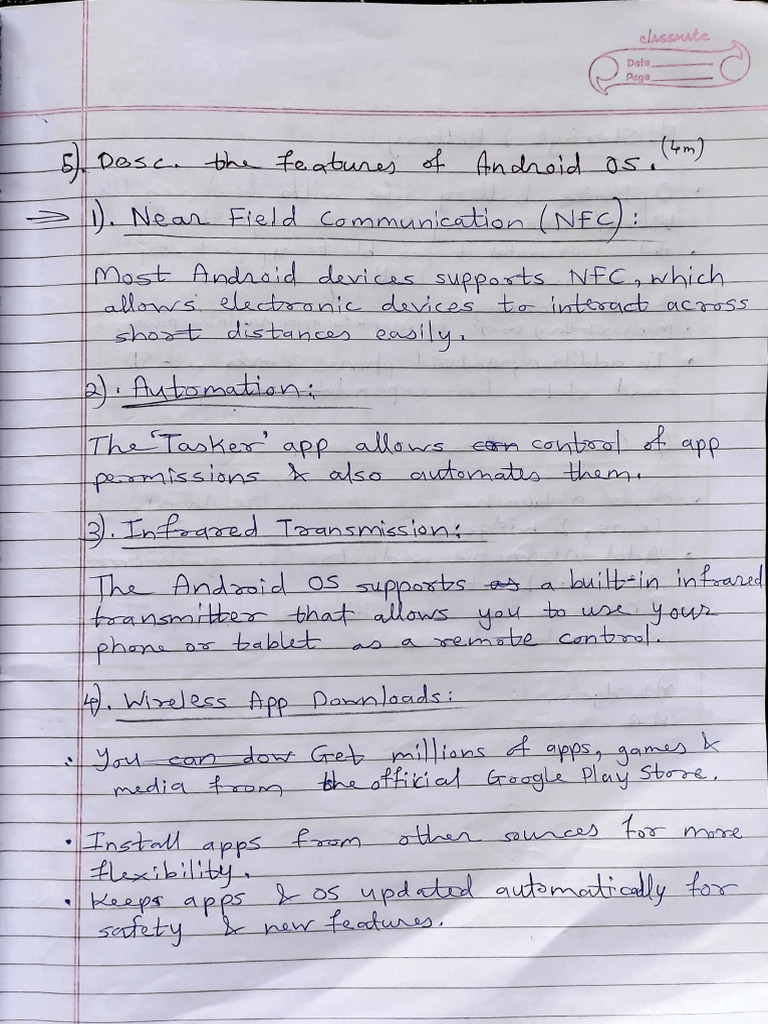 classmate
Date
Page
5). Desc. the features of Android OS. (4m)
→ 1). Near Field Communication (NFC):
Most Android devices supports NFC, which
allows electronic devices to interact across
short distances easily.
2). Automation:
The 'Tasker' app allows con control of app
permissions & also automates them.
3). Infrared Transmission:
The Android OS supports as a built-in infrared
transmitter that allows you to use your
phone or tablet as a remote control.
4). Wireless App Downloads:
• You can dow Get millions of apps, games &
media from the official Google Play Store.
• Install apps from other sources for more
flexibility.
• Keeps apps & OS updated automatically for
safety & new features.